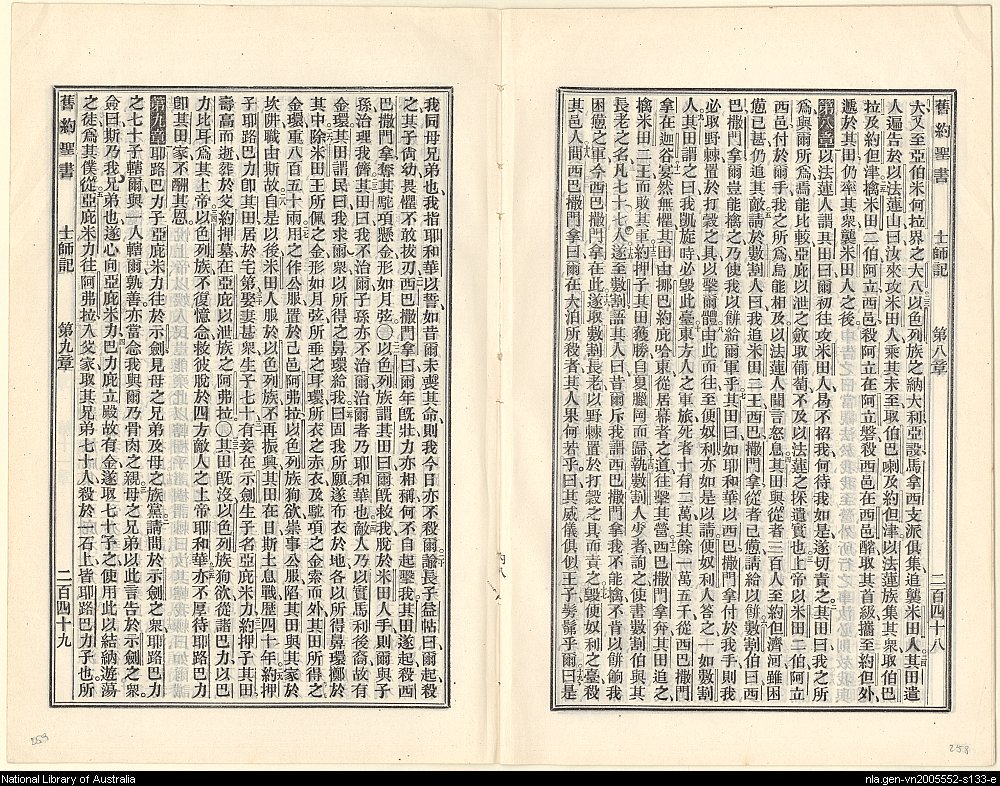 舊約聖書 士師記 第八章 二百四十八
大又至亞伯米何拉界之大八以色列族之納大利亞設馬拿西支派俱集追襲米田人其田遣
人遍告於以法蓮山曰汝來攻米田人乘其未至取伯巴喇及約但津以法蓮族集其衆取伯巴
拉及約但津擒米田二伯阿立西邑殺阿立在阿立磐殺西邑在西邑醡取其首級攜至約但外
遞於其田仍率其衆襲米田人之後
第八章以法蓮人謂其田曰爾初往攻米田人曷不招我何待我如是遂切責之其田曰我之所
爲與爾所爲焉能比較亞庇以泄之斂取葡萄不及以法蓮之採遺實也上帝以米田二伯阿立
西邑付於爾手我之所爲焉能相及以法蓮人聞言怒息其田與從者三百人至約但濟河雖困
憊已甚仍追其敵請於數割人曰我追米田二王西巴撒門拿從者已憊請給以餅數割伯曰西
巴撒門拿爾豈能擒之乃使我以餅給爾軍乎其田曰如耶和華以西巴撒門拿付於我手則我
必取野棘置於打穀之具以擊爾體由此而往至便奴利亦如是以請便奴利人答之一如數割
人其田謂之曰我凱旋時必毀此臺東方人之軍旅死者十有二萬其餘一萬五千從西巴撒門
拿在迦谷宴然無懼其田由挪巴約庇哈東從居幕者之道往擊其營西巴撒門拿奔其田追之
擒米田二王而敗其軍約押子其田獲勝自夏臘岡而歸執數割人少者詢之使書數割伯與其
長老之名凡七十七人遂至數割語其人曰昔爾斥我謂西巴撒門拿我不能擒不肯以餅餉我
困憊之軍今西巴撒門拿在此遂取數割長老以野棘置於打穀之具而責之毀便奴利之臺殺
其邑人問西巴撒門拿曰爾在大泊所殺者其人果何若乎曰其威儀俱似王子髣髴乎爾曰是
舊約聖書 士師記 第九章 二百四十九
我同母兄弟也我指耶和華以誓如昔爾未喪其命則我今日亦不殺爾諭長子益帖曰爾起殺
之其子尙幼畏懼不敢拔刃西巴撒門拿曰爾年旣壯力亦相稱何不自起擊我其田遂起殺西
巴撒門拿奪其駝項懸金形如月弦〇以色列族謂其田曰爾旣救我脫於米田人手則爾與子
孫治理我儕其田曰我不治爾子孫亦不治爾治爾者乃耶和華也敵人乃以實馬利後裔故有
金環其田謂民曰我求爾衆以所得之鼻環給我曰固我所願遂布衣於地各以所得鼻環擲於
其中除米田王所佩之金形如月弦所垂之耳環所衣之赤衣及駝項之金索而外其田所得之
金環重八百五十兩用之作公服置於己邑阿弗拉以色列族狥欲崇事公服陷其田與其家於
坎阱職由斯故自是以後米田人服於以色列族不再振興其田在日斯土息戰歷四十年約押
子耶路巴力卽其田居於宅第娶妻甚衆生子七十有妾在示劍生子名亞庇米力約押子其田
壽高而逝葬於父約押墓在亞庇以泄族之阿弗拉〇其田旣沒以色列族狥欲從諸巴力以巴
力比耳爲其上帝以色列族不復憶念救彼脫於四方敵人之上帝耶和華亦不厚待耶路巴力
卽其田家不酬其恩
第九章耶路巴力子亞庇米力往於示劍見母之兄弟及母之族黨請問於示劍之衆耶路巴力
之七十子轄爾與一人轄爾孰善亦當念我與爾乃骨肉之親母之兄弟以此言告於示劍之衆
僉曰斯乃我兄弟也遂心向亞庇米力巴力庇立殿故有金遂取七十予之使用此以結納遊蕩
之徒爲其僕從亞庇米力往阿弗拉入父家取其兄弟七十人殺於一石上皆耶路巴力子也所
259
258
National Library of Australia
nla.gen-vn2005552-s133-e